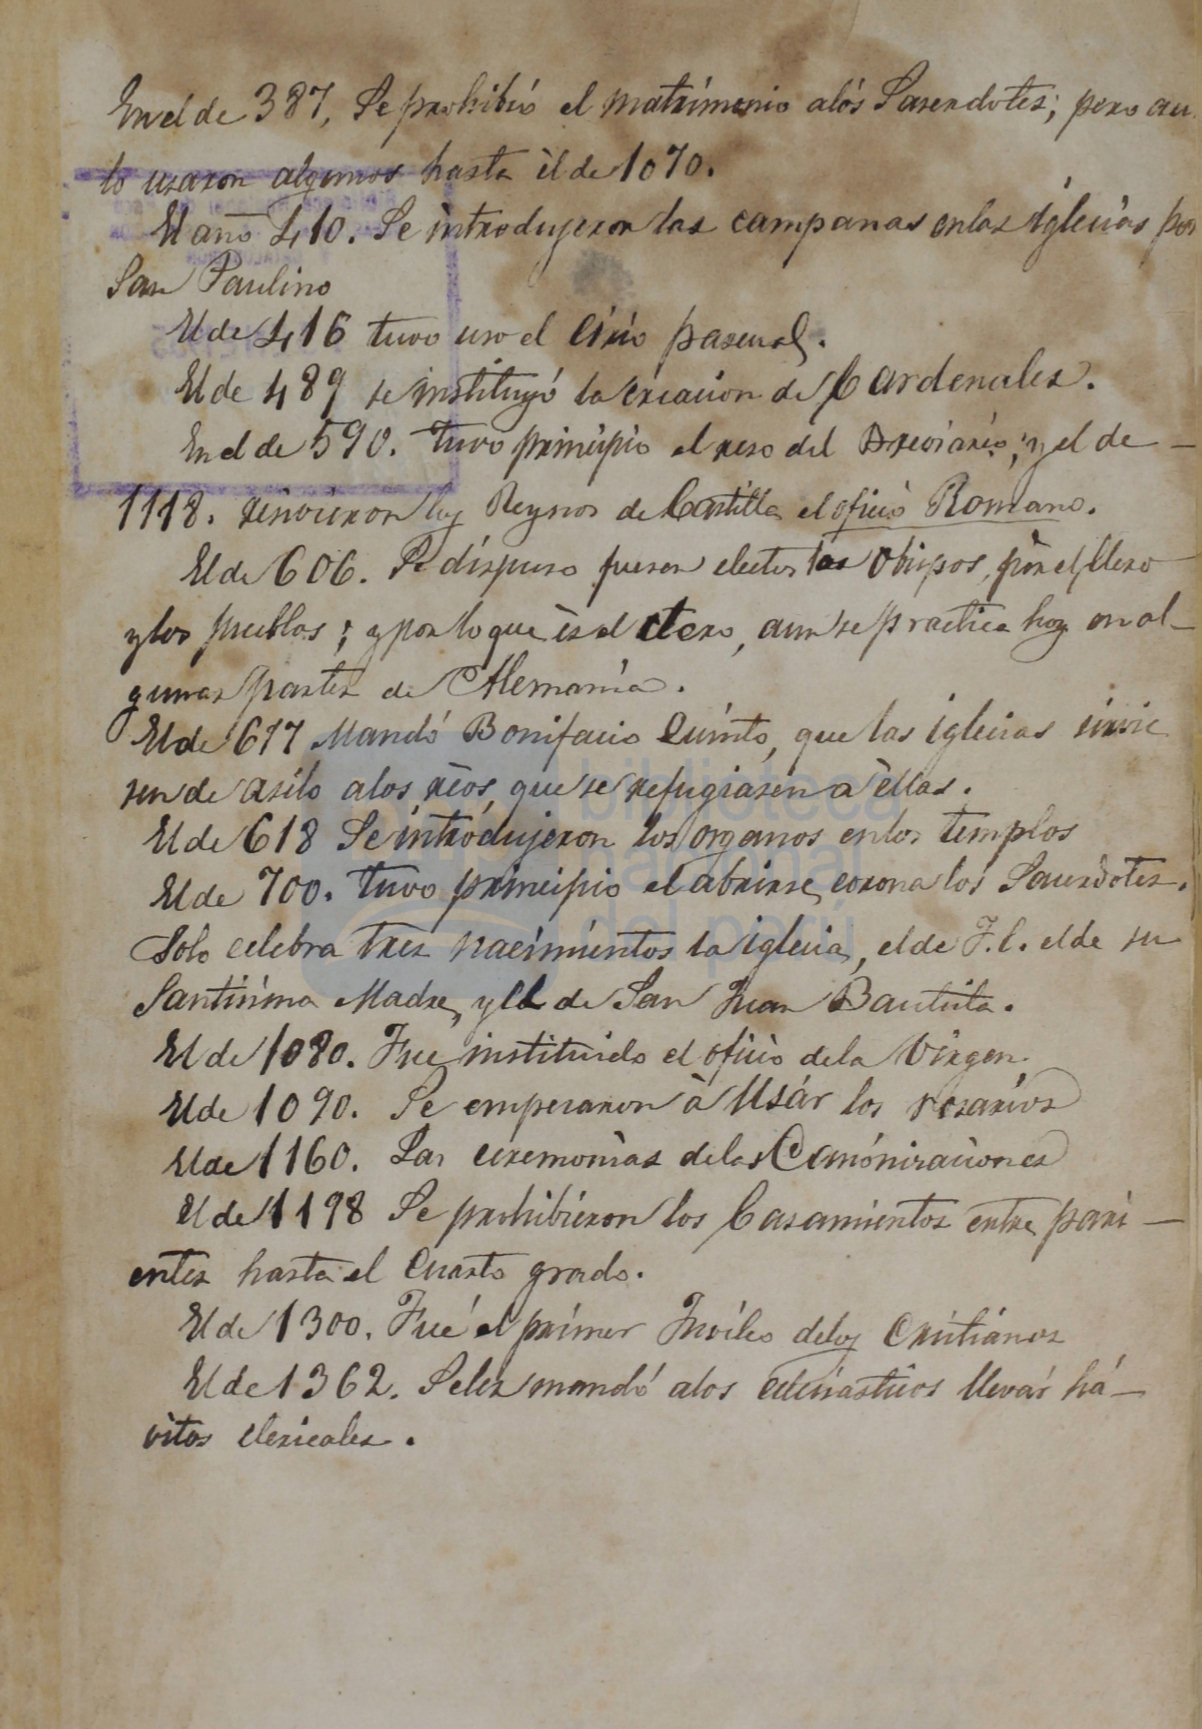 En el de 387, Se prohibió el matrimonio alós Saserdotes; pero au
lo usaron algunos hasta èl de 1070.
El año 410. Se introdujeron las campanas enlas Iglecias por
San Paulino
El de 416 tuvo uso el Cirio pascual.
El de 489 se instituyó la creacion de Cardenales.
En el de 590. tuvo principio el reso del Breviario; y el de —
1118. resivieron los Reynos de Castilla el oficio Romano.
El de 606. Se dispuso fuesen electos los Obispos, por el Clero
y los pueblos; y por lo que ès al clero, aun se practica hoy en al—
gunas partes de Alemania.
El de 617 Mandó Bonifacio Quinto, que las iglecias sirvie
sen de asilo a los rèos, que se refugiasen a èllas.
El de 618 Se introdujeron los organos en los templos
El de 700. tuvo principio el abrirse corona los Saserdotes.
Solo celebra tres nacimientos la iglecia, el de J.C. el de su
Santisima Madre, y el de San Juan Bautista.
El de 1080. Fue instituido el oficio dela Virgen.
El de 1090. Se empesaron à Usár los rosarios
El de 1160. Las ceremonias delas Canónisaciones
El de 1198 Se prohibieron los Casamientos entre pari—
entes hasta el Cuarto grado.
El de 1300. Fué el primer Juvileo delos Cristianos
El de 1362. Seles mandó alos eclesiasticos llevár há—
vitos clericales.
biblioteca
nacional
del perú